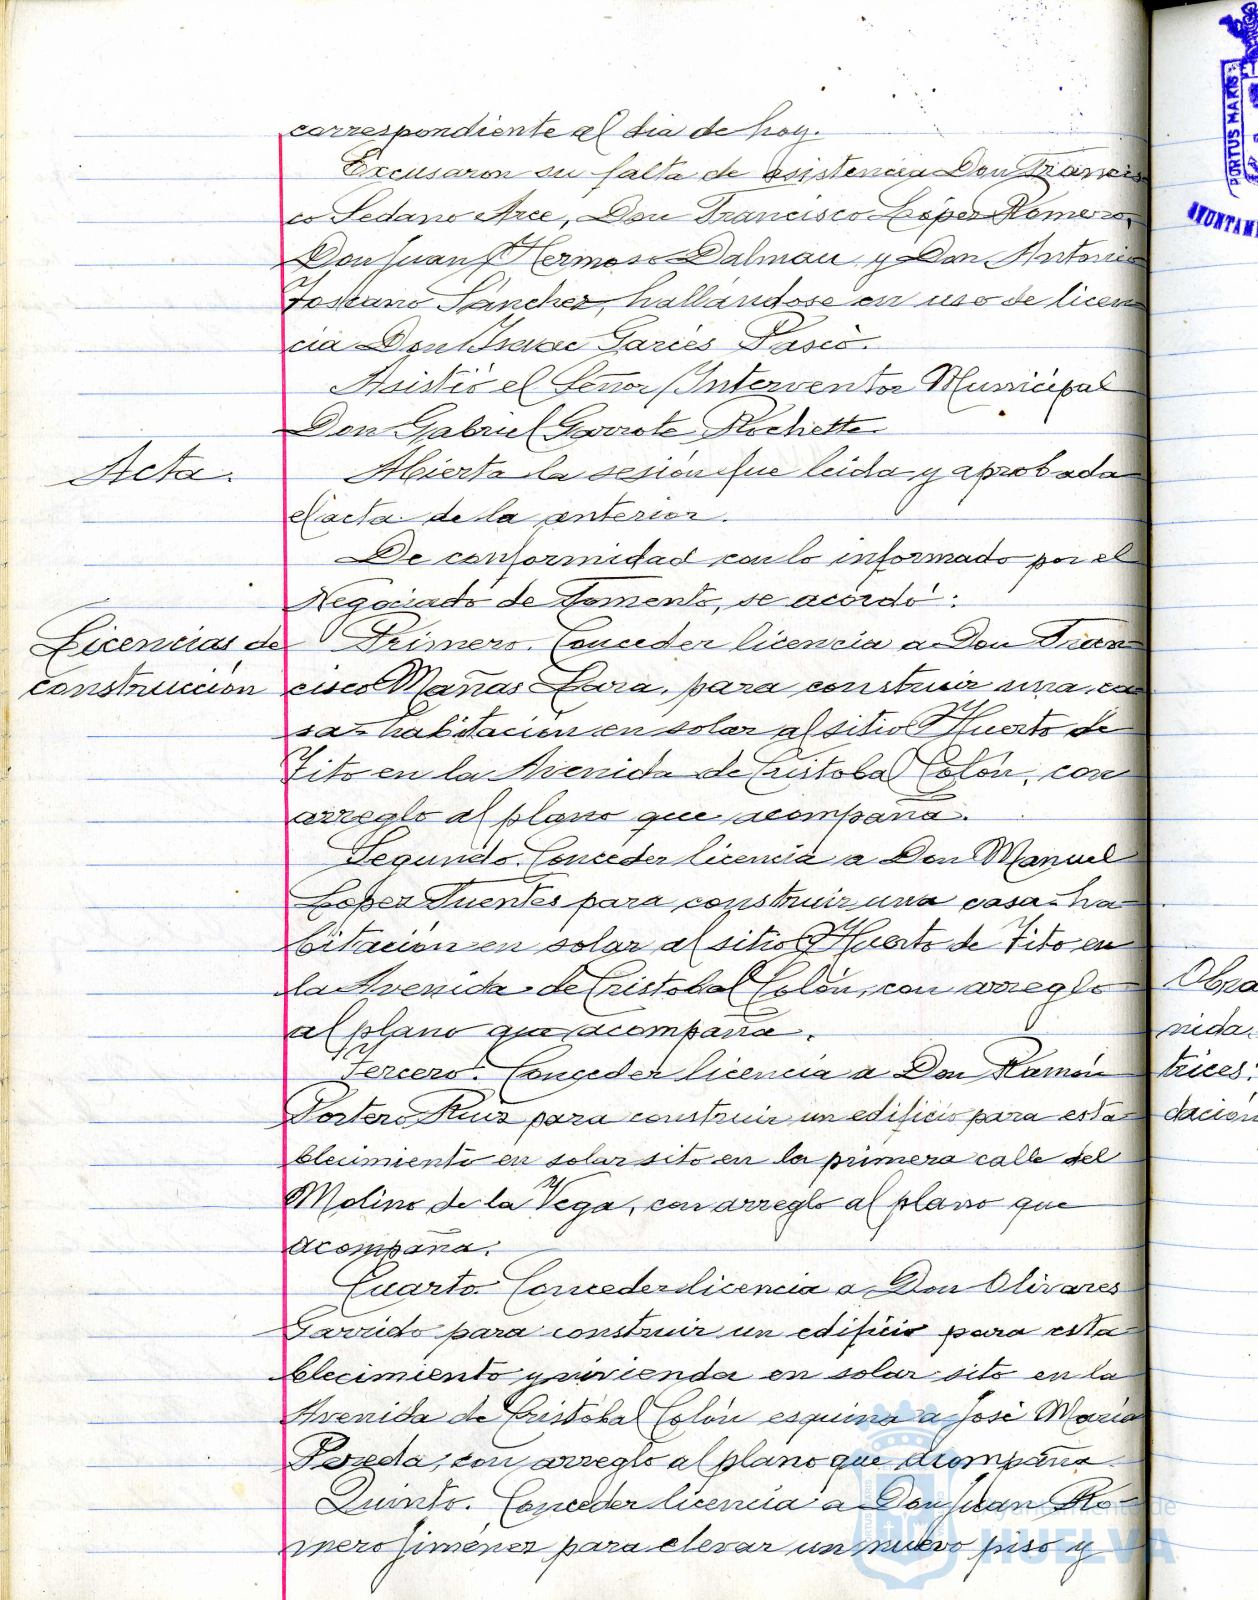 correspondiente al dia de hoy.
Excusaron su falta de asistencia Don Francis
co Sedano Arce, Don Francisco López Romero,
Don Juan Hermoso Dalmau y Don Antonio
Toscano Sánchez, hallándose en uso de licen
cia Don Isaac Garcés Pasió.
Asistió el Señor Interventor Municipal
Don Gabriel Garrote Rochette
Acta.
Abierta la sesión fue leida y aprobada
el acta de la anterior.
De conformidad con lo informado por el
Negociado de Fomento, se acordó:
Licencias de
construcción
Primero. Conceder licencia a Don Fran
cisco Mañas Lara, para construir una ca
sa-habitación en solar al sitio Huerto de
Tito en la Avenida de Cristobal Colón, con
arreglo al plano que acompaña.
Segundo. Conceder licencia a Don Manuel
López Fuentes para construir una casa-ha
bitación en solar al sitio Huerto de Tito en
la Avenida de Cristobal Colón, con arreglo
al plano que acompaña.
Tercero. Conceder licencia a Don Ramón
Portero Ruiz para construir un edificio para esta
blecimiento en solar sito en la primera calle del
Molino de la Vega, con arreglo al plano que
acompaña.
Cuarto. Conceder licencia a Don Olivares
Garrido para construir un edificio para esta
blecimiento y vivienda en solar sito en la
Avenida de Cristóbal Colón esquina a José María
Pereda, con arreglo al plano que acompaña.
Quinto. Conceder licencia a Don Juan Ro-
mero Jiménez para elevar un nuevo piso y
Obra
nida
trices:
dación
PORTUS MARIS
AYUNTAM
Ayuntamiento de
HUELVA